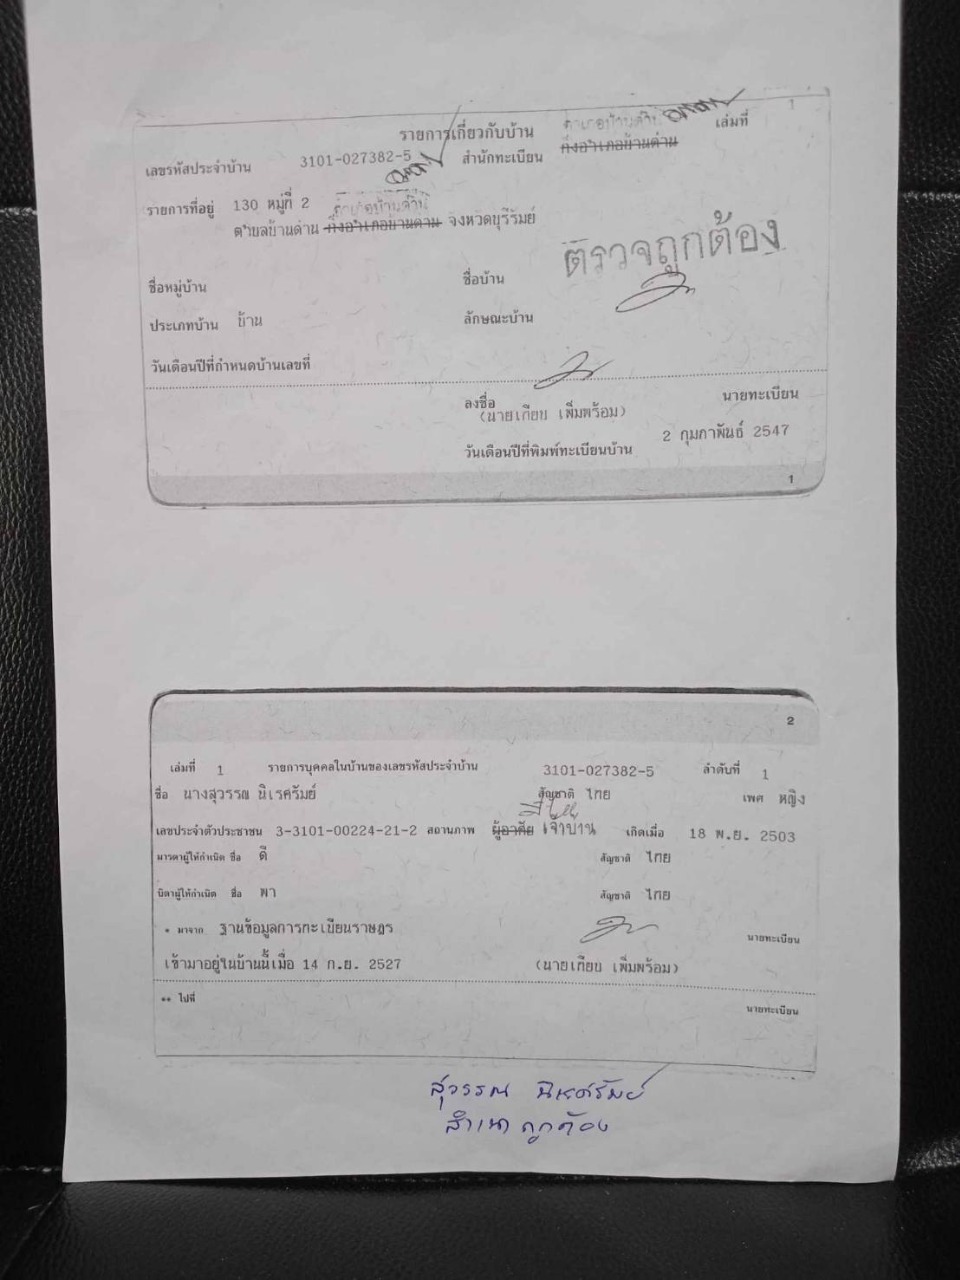 1
รายการเกี่ยวกับบ้าน เล่มที่
เลขรหัสประจำบ้าน 3101-027382-5 สำนักทะเบียน กิ่งอำเภอบ้านด่าน
อำเภอบ้านด่าน
รายการที่อยู่ 130 หมู่ที่ 2 อำเภอบ้านด่าน
ตำบลบ้านด่าน กิ่งอำเภอบ้านด่าน จังหวัดบุรีรัมย์
ตรวจถูกต้อง
ชื่อหมู่บ้าน ชื่อบ้าน
ประเภทบ้าน บ้าน ลักษณะบ้าน
วันเดือนปีที่กำหนดบ้านเลขที่
ลงชื่อ นายทะเบียน
(นายเกียบ เพิ่มพร้อม)
วันเดือนปีที่พิมพ์ทะเบียนบ้าน 2 กุมภาพันธ์ 2547
1
2
เล่มที่ 1 รายการบุคคลในบ้านของเลขรหัสประจำบ้าน 3101-027382-5 ลำดับที่ 1
ชื่อ นางสุวรรณ นิเรศรัมย์ สัญชาติ ไทย เพศ หญิง
เลขประจำตัวประชาชน 3-3101-00224-21-2 สถานภาพ ผู้อาศัย เจ้าบ้าน เกิดเมื่อ 18 พ.ย. 2503
มารดาผู้ให้กำเนิด ชื่อ ดี สัญชาติ ไทย
บิดาผู้ให้กำเนิด ชื่อ พา สัญชาติ ไทย
* มาจาก ฐานข้อมูลการทะเบียนราษฎร นายทะเบียน
เข้ามาอยู่ในบ้านนี้เมื่อ 14 ก.ย. 2527 (นายเกียบ เพิ่มพร้อม)
** ไปที่ นายทะเบียน
สุวรรณ นิเรศรัมย์
สำเนาถูกต้อง